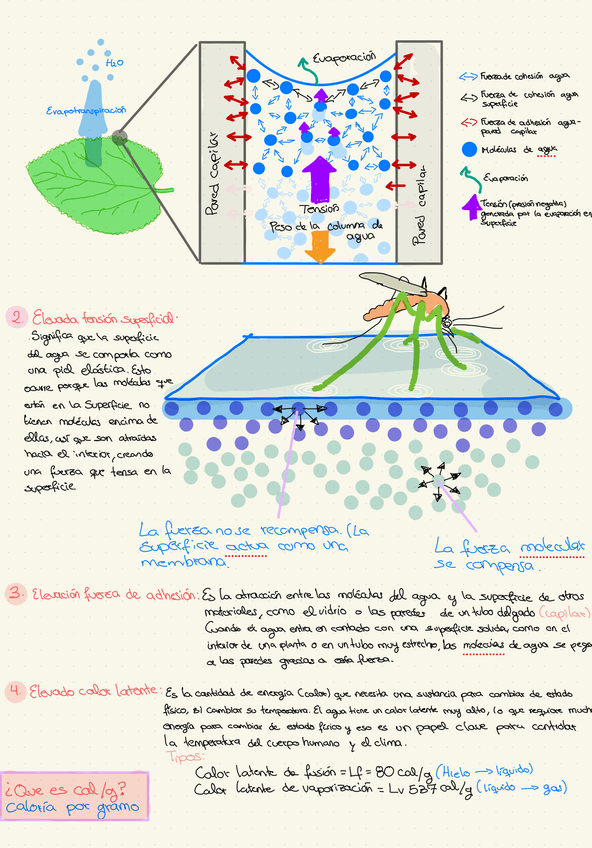 H₂O
Evapotranspiración
Pared capilar
Evaporación
Tensión
Peso de la columna de
agua
Pared capilar
Fuerza de cohesión agua
Fuerza de cohesión agua
superficie
Fuerza de adhesión agua-
pared capilar
Moléculas de agua
Evaporación
Tensión (presión negativa)
generada por la evaporación en
superficie
2. Elevada tensión superficial.
Significa que la superficie
del agua se comporta como
una piel elástica. Esto
ocurre porque las moléculas que
están en la superficie no
tienen moléculas encima de
ellas, así que son atraídas
hacia el interior, creando
una fuerza que tensa en la
superficie
La fuerza no se recompensa. (La
superficie actua como una
membrana.
La fuerza molecular
se compensa.
3. Elevación fuerza de adhesión: Es la atracción entre las moléculas del agua y la superficie de otros
materiales, como el vidrio o las paredes de un tubo delgado (capilar)
Cuando el agua entra en contacto con una superficie solida, como en el
interior de una planta o en un tubo muy estrecho, las moleculas de agua se pega
a las paredes gracias a esta fuerza.
4. Elevado calor latente: Es la cantidad de energía (calor) que necesita una sustancia para cambiar de estado
físico, sin cambiar su temperatura. El agua tiene un calor latente muy alto, lo que requiere much
energía para cambiar de estado físico y eso es un papel clave para controlar
la temperatura del cuerpo humano y el clima.
Tipos:
Calor latente de fusión = Lf = 80 cal/g (Hielo → líquido)
Calor latente de vaporización = Lv 537 cal/g (líquido → gas)
¿Que es cal/g?
Caloría por gramo